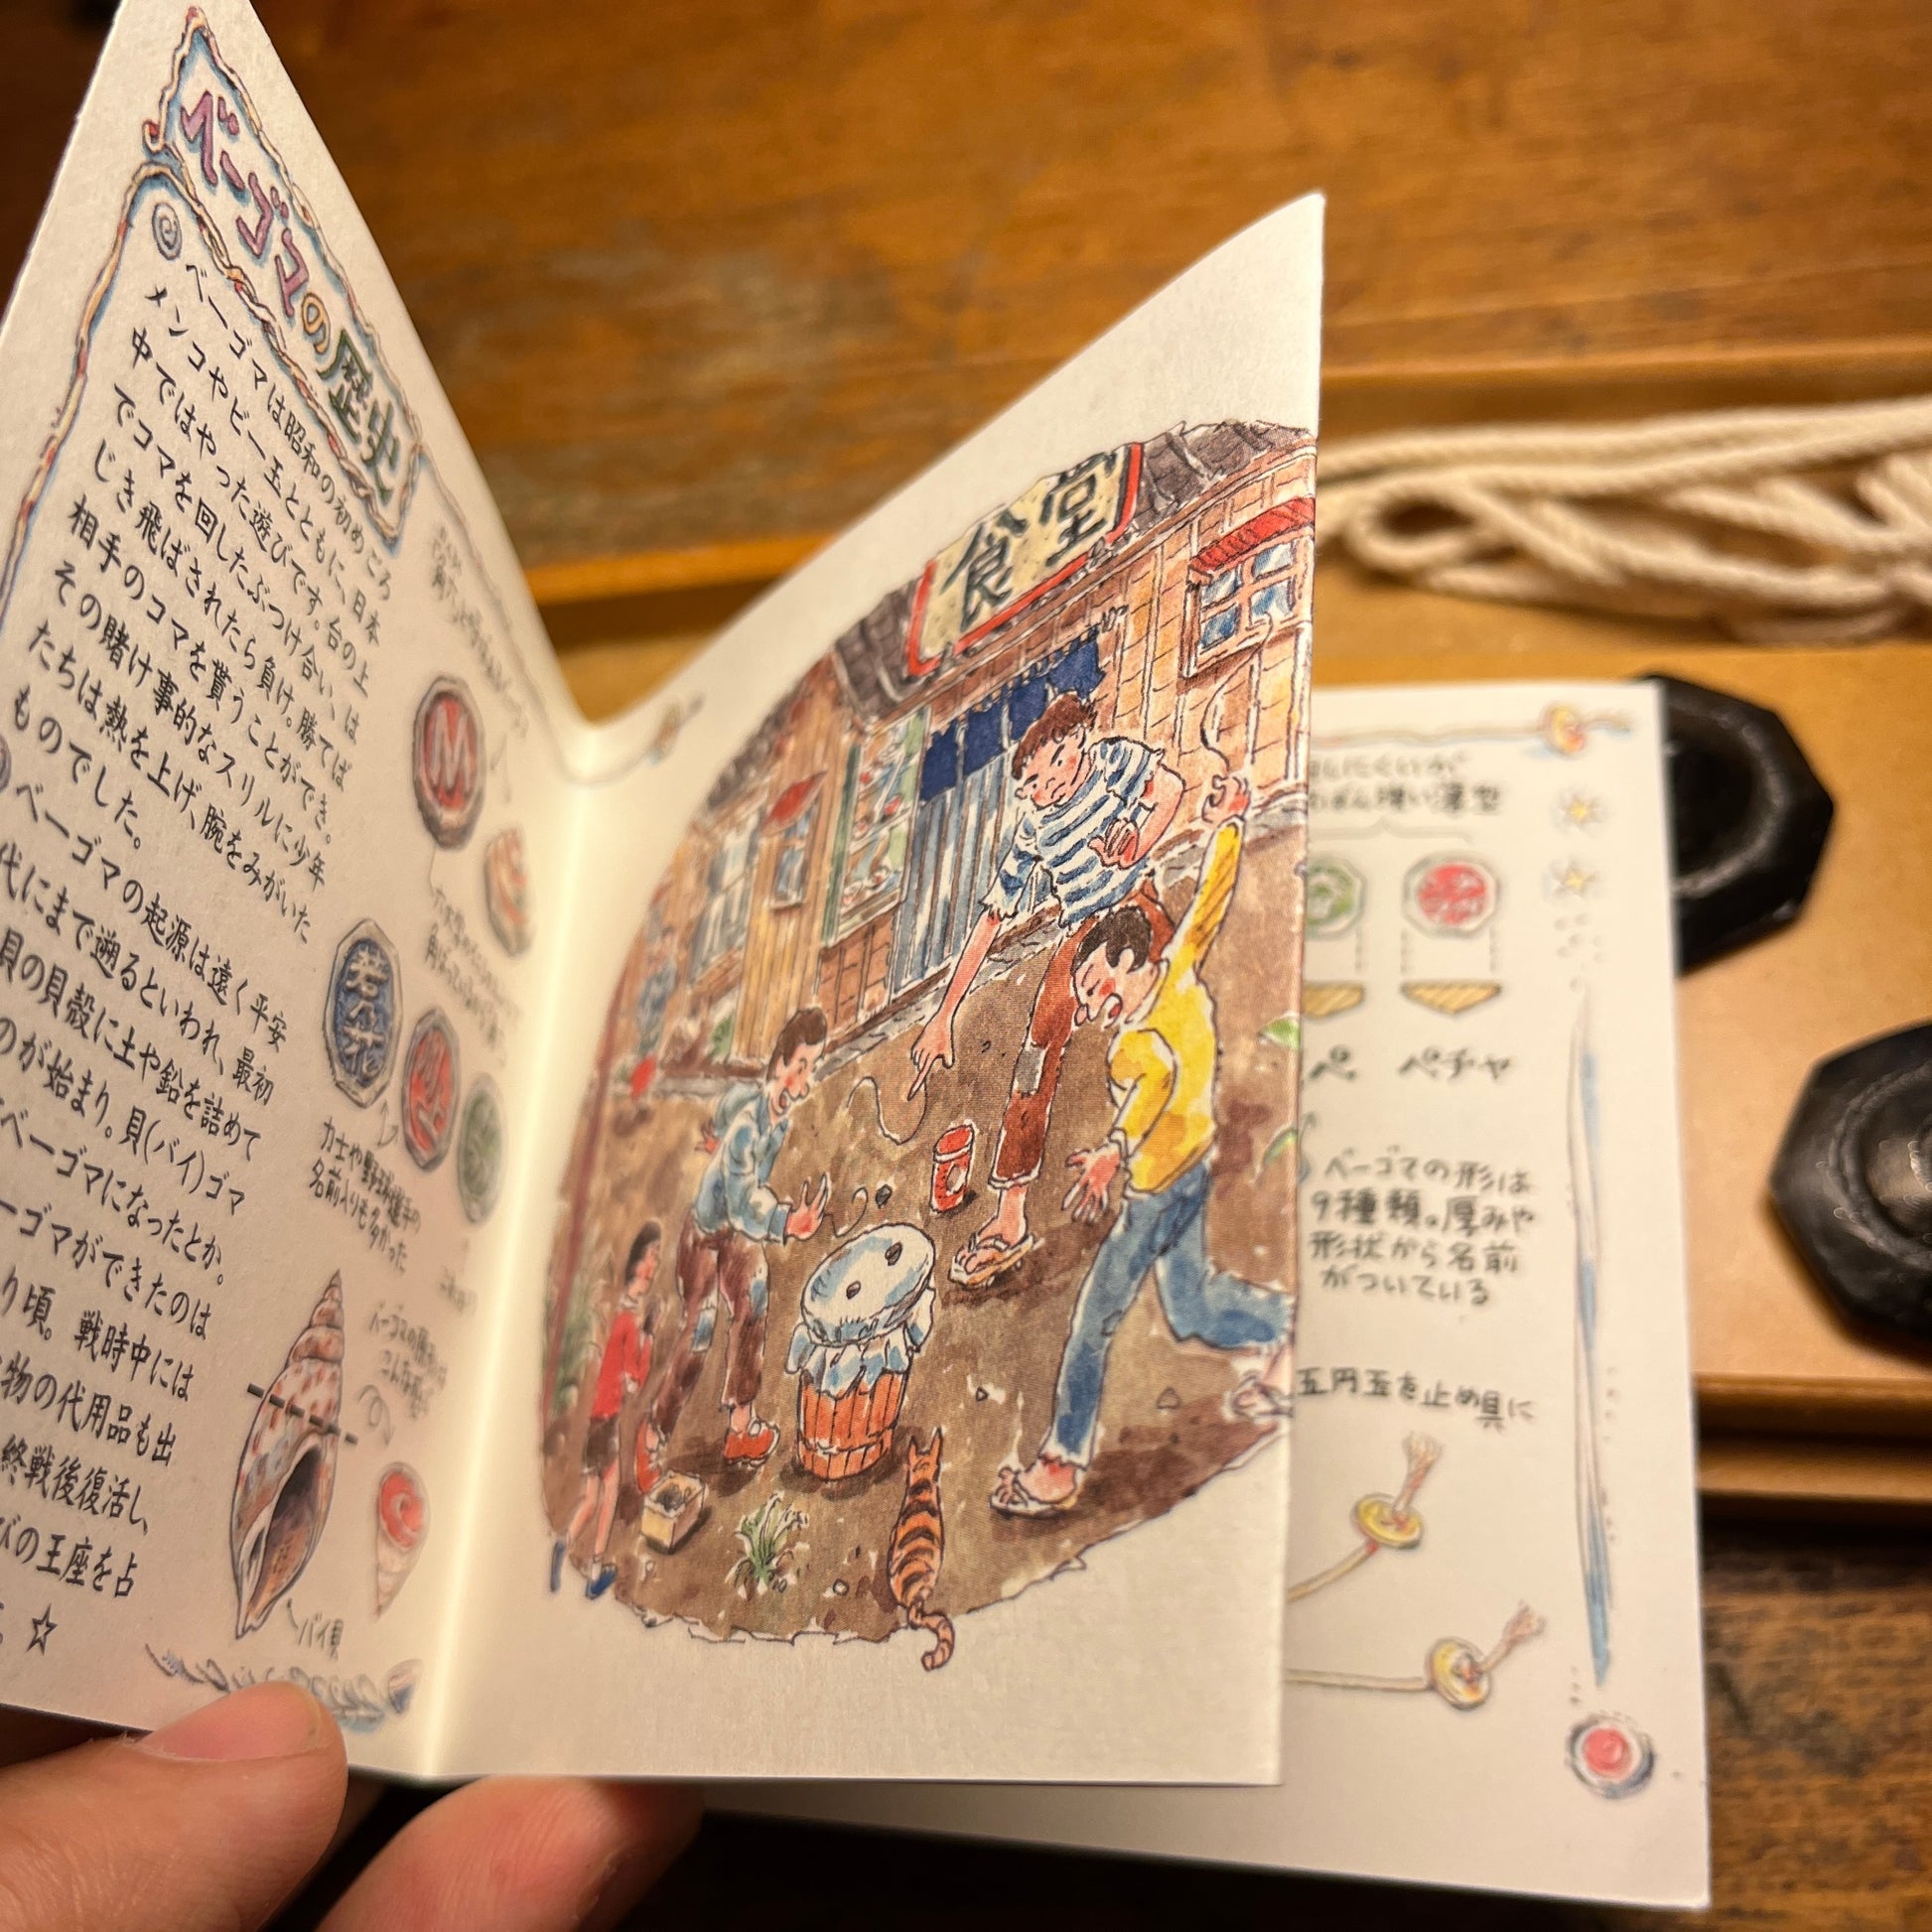 ベーゴマの歴史
ベーゴマは昭和の初めころ
メンコやビー玉とともに、日本
中ではやった遊びです。台の上
でコマを回したぶつけ合い、は
じき飛ばされたら負け。勝てば
相手のコマを貰うことができ。
その賭け事的なスリルに少年
たちは熱を上げ、腕をみがいた
ものでした。
ベーゴマの起源は遠く平安
代にまで遡るといわれ、最初
貝の貝殻に土や鉛を詰めて
のが始まり。貝(バイ)ゴマ
ベーゴマになったとか。
ーゴマができたのは
り頃。戦時中には
物の代用品も出
終戦後復活し、
びの王座を占
☆
M
力士や野球選手の
名前入りも多かった
バイ貝
食堂
ペチャ
ベーゴマの形は
9種類。厚みや
形状から名前
がついている
五円玉を止め具に